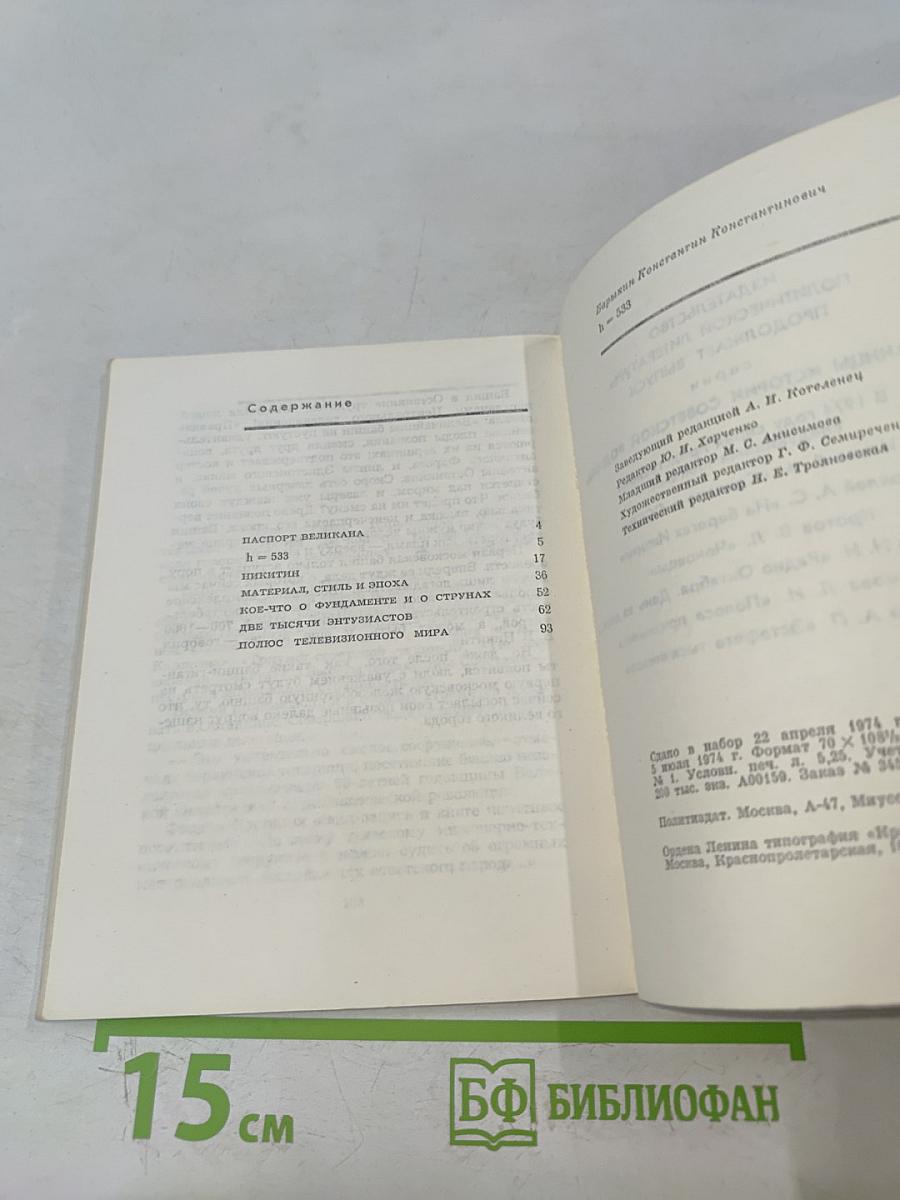 Содержание
ПАСПОРТ ВЕЛИКАНА 4
h = 533 5
НИКИТИН 17
МАТЕРИАЛ, СТИЛЬ И ЭПОХА 36
КОЕ-ЧТО О ФУНДАМЕНТЕ И О СТРУНАХ 52
ДВЕ ТЫСЯЧИ ЭНТУЗИАСТОВ 62
ПОЛЮС ТЕЛЕВИЗИОННОГО МИРА 93
Барыкин Константин Константинович
h = 533
Заведующий редакцией А. И. Котеленец
Редактор Ю. И. Харченко
Младший редактор М. С. Анисимова
Художественный редактор Г. Ф. Семиречен
Технический редактор Н. Е. Трояновская
Сдано в набор 22 апреля 1974 г
5 июля 1974 г. Формат 70 × 108¹/
№ 1. Условн. печ. л. 5,25. Учет
200 тыс. экз. А00159. Заказ № 345
Политиздат. Москва, А-47, Миус
Ордена Ленина типография «Кр
Москва, Краснопролетарская,
15 см
БФ БИБЛИОФАН